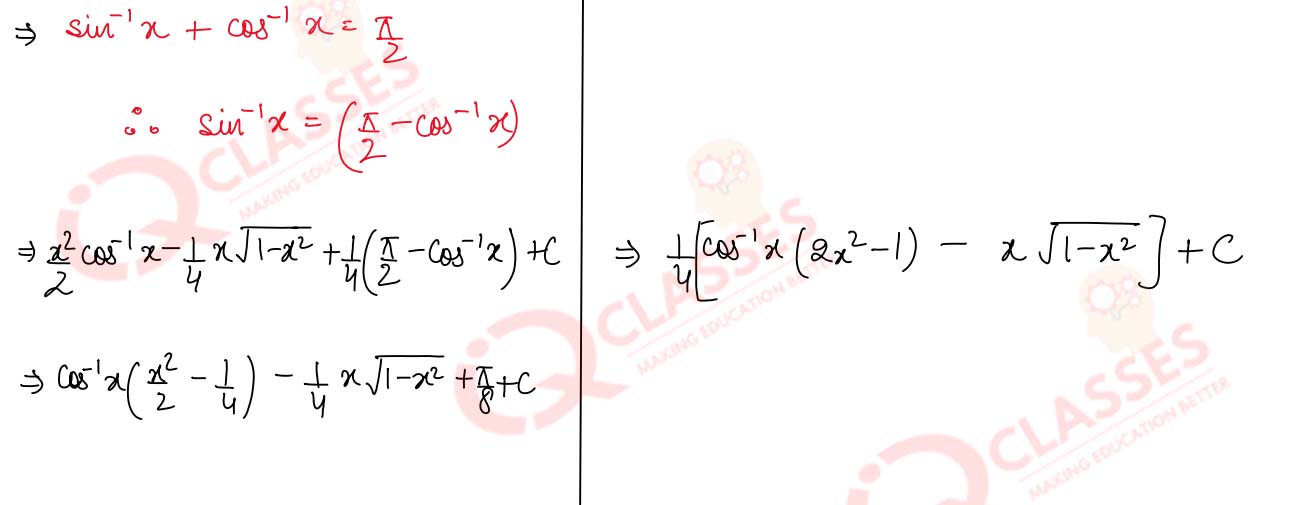 ⇒ sin⁻¹x + cos⁻¹x = π/2
∴ sin⁻¹x = (π/2 - cos⁻¹x)
⇒ x²/2 cos⁻¹x - 1/4 x√(1-x²) + 1/4(π/2 - cos⁻¹x) + C
⇒ cos⁻¹x(x²/2 - 1/4) - 1/4 x√(1-x²) + π/8 + C
⇒ 1/4[cos⁻¹x(2x²-1) - x√(1-x²)] + C
iQ CLASSES
MAKING EDUCATION BETTER
iQ CLASSES
MAKING EDUCATION BETTER
iQ CLASSES
MAKING EDUCATION BETTER